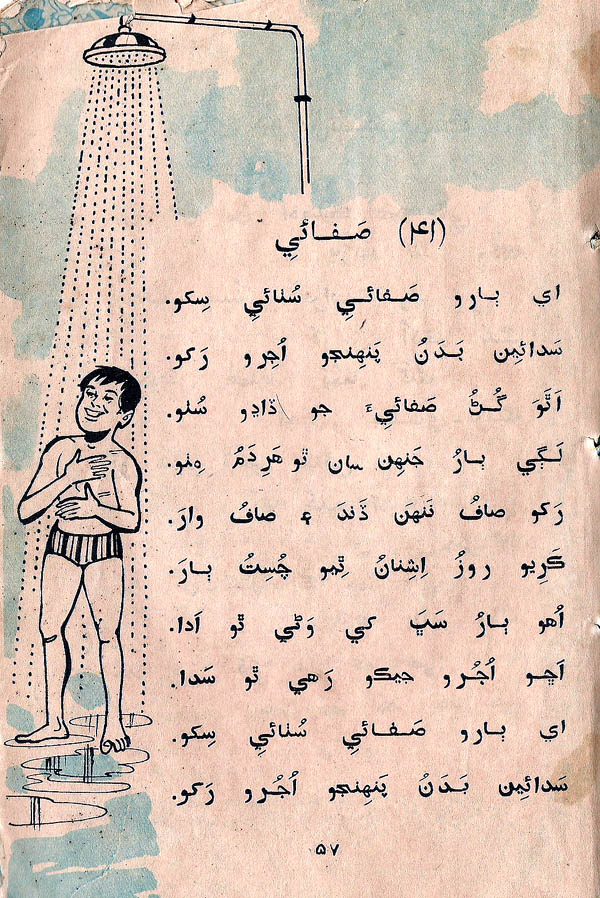 (۴۱) صَـفـائـي
اي ٻارو صَـفـائـي سُٺائي سِکو.
سَدائين بَـدَنُ پَنهِنجو اُجرو رَکو.
اَٿَوَ گُـڻُ صَفائيءَ جو ڏاڍو سُٺو.
لَـڳي ٻارُ جَنهِن سان ٿو هَر دَمُ مِٺو.
رَکو صافُ نَنهَن ڏَندَ ۽ صافُ وارَ.
ڪَريو روزُ اِشنانُ ٿِيو چُستُ ٻارَ.
اُهو ٻارُ سَڀَ کي وَڻي ٿو اَدا.
اَڇو اُجُرو جيڪو رَهي ٿو سَدا.
اي ٻارو صَـفـائـي سُٺائي سِکو.
سَدائين بَـدَنُ پَنهِنجو اُجُرو رَکو.
۵۷